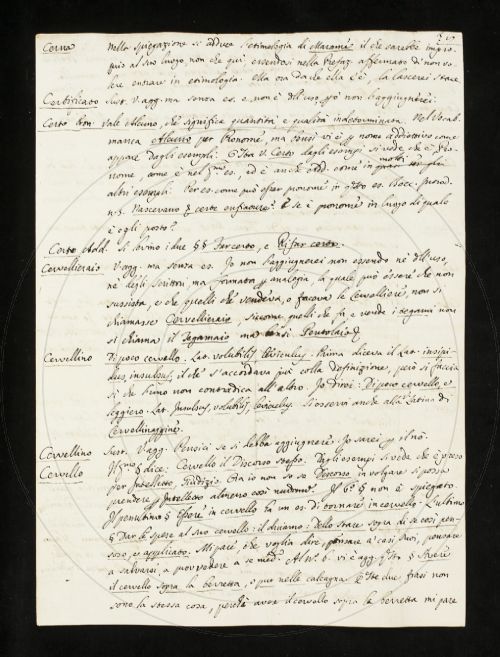 Cerna Nella Spiegazione si adduce l'etimologia di Macarone il che sarebbe impro-
prio al suo luogo, non che qui, essendosi nella Prefaz. affermato di non vo-
lere entrare in etimologia. Ella ora da de ella c'è, la lascerei stare
Certificato Sust. V. agg. ma senza es. e non è d'uso, però non l'aggiugnerei.
Certo Pron. vale Alcuno, che significa quantità, e qualità indeterminata. Nel Vocab.
manca Alcuno per Pronome, ma bensì vi è per nome addiettivo come
appare dagli esempi. E sta V. Certo dagli esempi si vede che è
nome, come è nel es. ed è anche add. come in molti
altri esempi. Per es. come può esser pronome in questo es. Bocc.
n. 8. Nascevano certe enfiature? E se è pronome in luogo di quale
è egli posto?
Certo Add. si sermo i due §§ Far certo, e Rifar certo.
Cervellieraio V. agg. ma senza es. Io non l'aggiugnerei non essendo nè dell'uso,
nè degli Scrittori, ma formata per analogia, la quale può essere che non
sussista, e che quelli che vendeva, o faceva le Cervelliere, non si
chiamasse Cervellieraio siccome quelli che fa, e vende i tegami non
si chiama il Tegamaio ma bensì Pentolaio
Cervellino Di poco cervello. Lat. volubilis, leviculus. Prima diceva il Lat. insipi-
dus, insulsus, il che s'accordava più colla definizione, però si faccia
si che l'uno non contradica all'altro. Io direi: Di poco cervello, e
leggiero. Lat. Insulsus, volubilis, leviculus. Si osservi anche alla Latina di
Cervellinaggine.
Cervellino Sust. V. agg. Pensici se si debba aggiugnere. Io sarei per il nò.
Cervello dice. Cervello il Discorso stesso. Dagli esempi si vede che è preso
per Intelletto, Giudizio. Ora io non so se Discorso in volgare si possa
prendere per Intelletto almeno così nudamente. Il 6.° § non è spiegato.
Il penultimo § Essere in cervello ha un es. di tornare in cervello. L'ultimo
§ Dar le spese al suo cervello: il diciamo: dello Stare sopra di se così pen-
soso, e applicato. Mi pare, che voglia dire, pensare a' casi suoi, pensare
a salvarsi, a provvedere a se med. Al N. 6. vi è agg. § Avere
il cervello sopra la berretta, o pur nelle calcagna. Queste due frasi non
sono la stessa cosa, perchè aver il cervello sopra la berretta mi pare